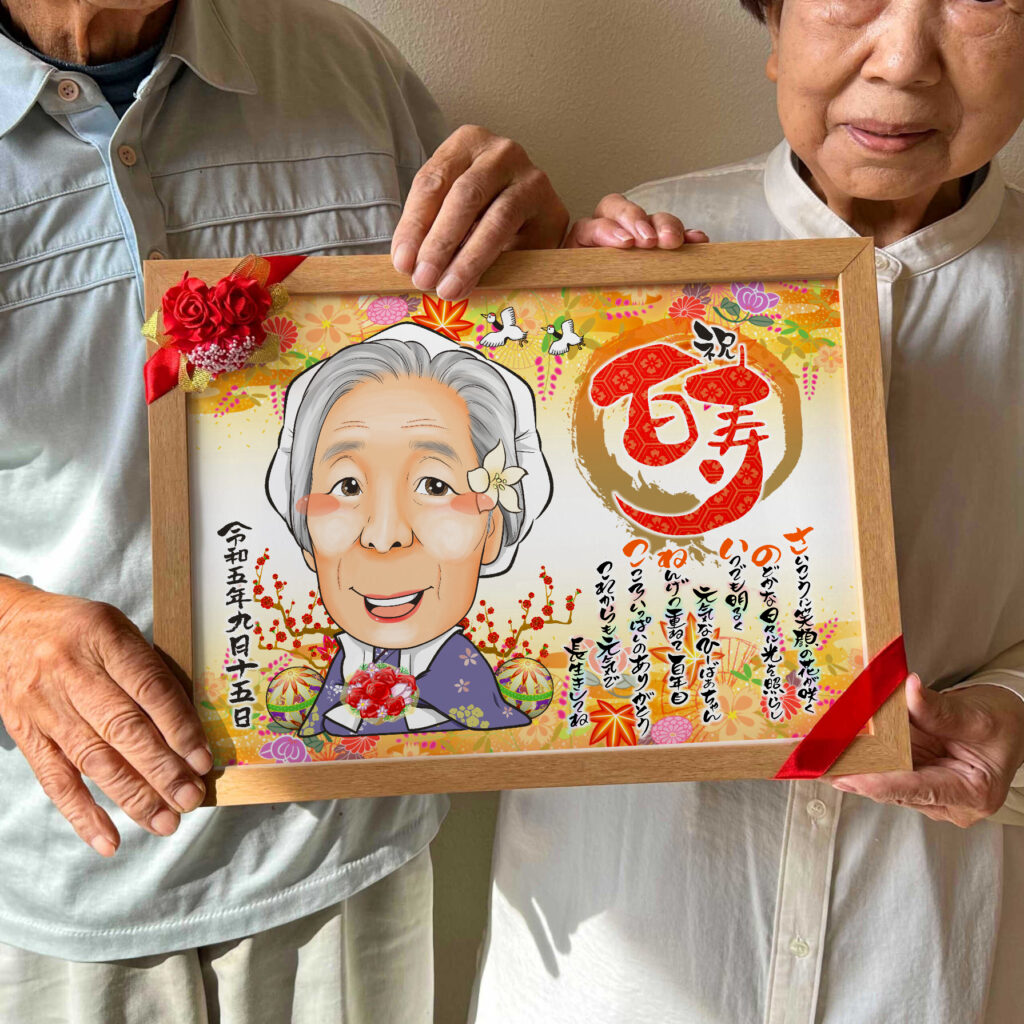 祝
百寿
さいこうに笑顔の花が咲く
のどかな日々に光を照らし
いつでも明るく
元気なひーばあちゃん
ねんげつ重ねて百年目
こころいっぱいのありがとう
これからも元気で
長生きしてね
令和五年九月十五日